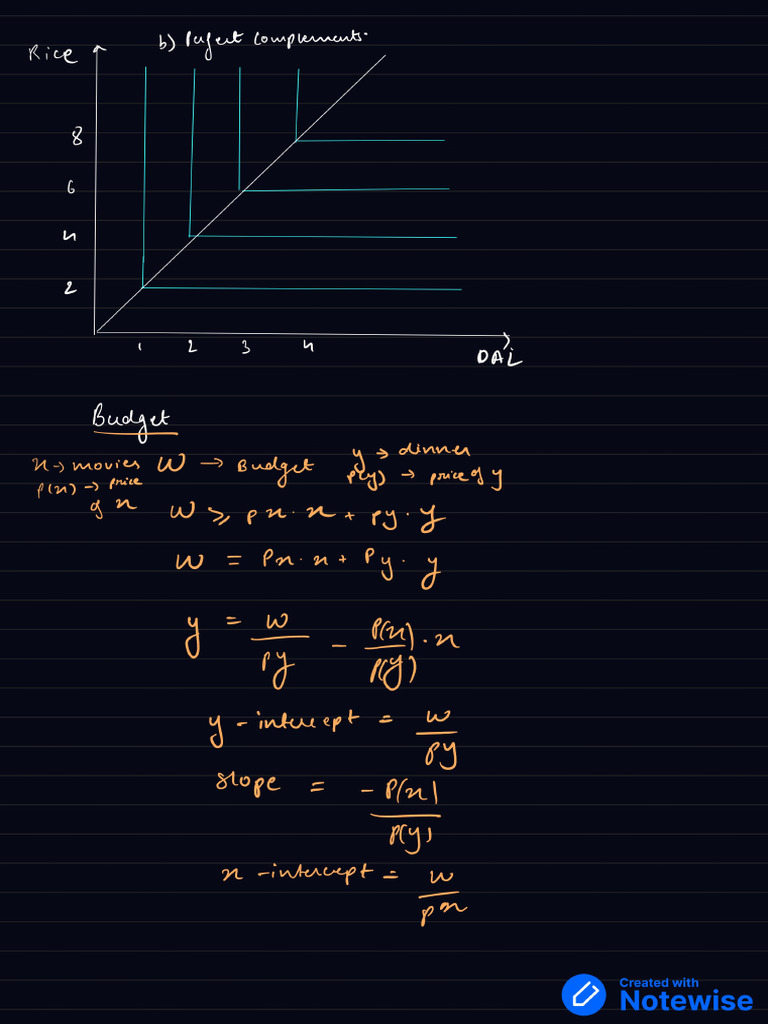 b) Perfect complements.
Rice
8
6
4
2
1 2 3 4
DAL
Budget
x → movies W → Budget y → dinner
p(x) → price of x p(y) → price of y
W ≥ px·x + py·y
W = Px·x + Py·y
y = w/py - P(x)/P(y)·x
y-intercept = w/py
slope = -P(x)/P(y)
x-intercept = w/px
Created with
Notewise